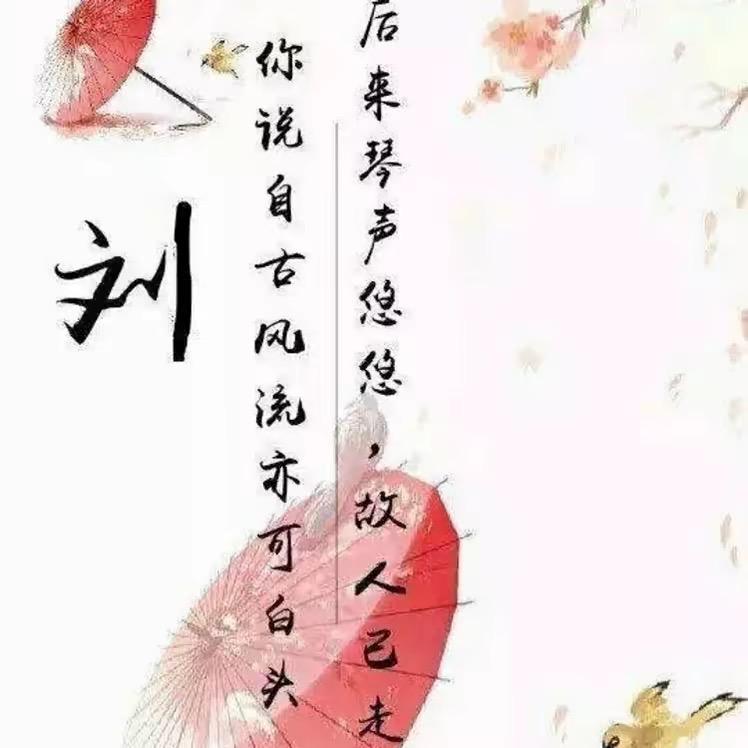 刘
你说自古风流亦可白头
后来琴声悠悠，故人已走